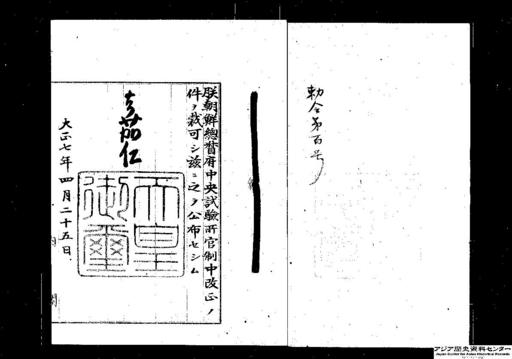 勅令第百号
朕朝鮮總督府中央試驗所官制中改正ノ
件ヲ裁可シ茲ニ之ヲ公布セシム
嘉仁
天皇
御璽
大正七年四月二十五日
アジア歴史資料センター
Japan Center for Asian Historical Records